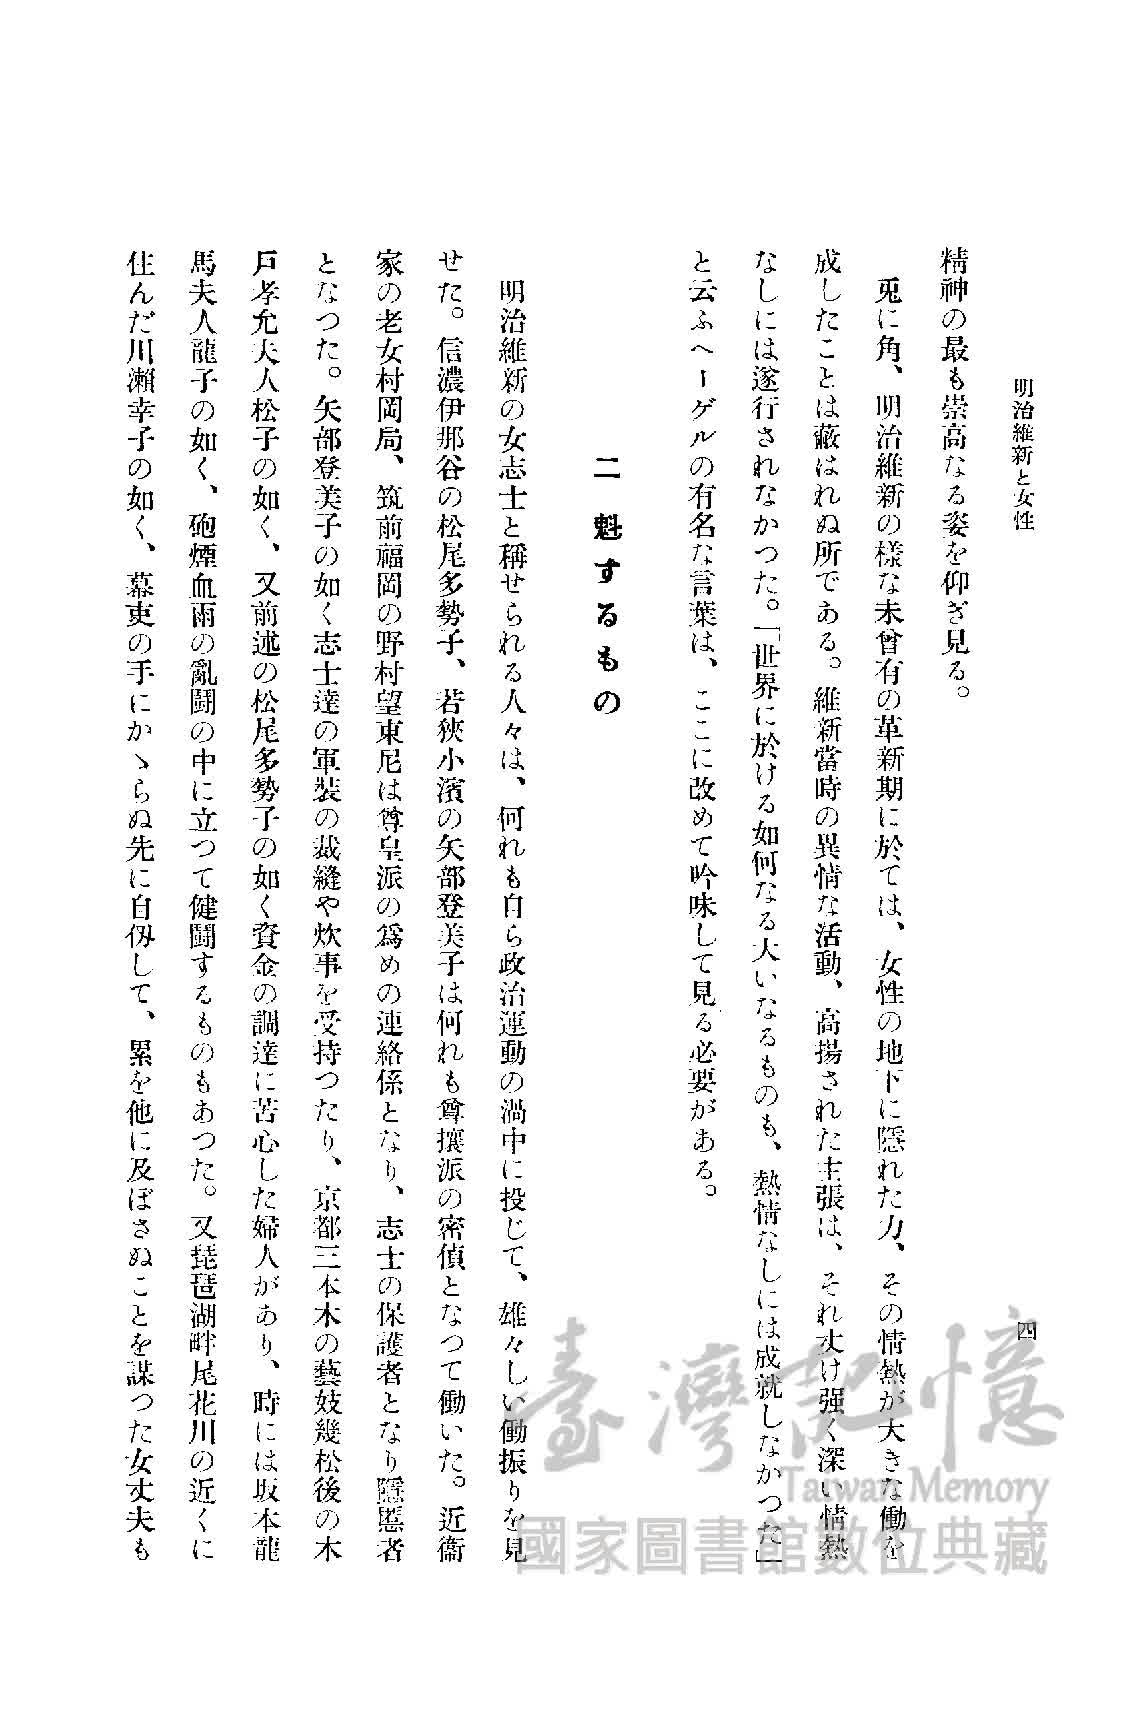 明治維新と女性
四
精神の最も崇高なる姿を仰ぎ見る。
兎に角、明治維新の様な未曾有の革新期に於ては、女性の地下に隱れた力、その情熱が大きな働を
成したことは蔽はれぬ所である。維新當時の異情な活動、高揚された主張は、それ丈け强く深い情熱
なしには遂行されなかつた。「世界に於ける如何なる大いなるものも、熱情なしには成就しなかつた」
と云ふヘーゲルの有名な言葉は、ここに改めて吟味して見る必要がある。
二 魁するもの
明治維新の女志士と稱せられる人々は、何れも自ら政治運動の渦中に投じて、雄々しい働振りを見
せた。信濃伊那谷の松尾多勢子、若狹小濱の矢部登美子は何れも尊攘派の密偵となつて働いた。近衞
家の老女村岡局、筑前福岡の野村望東尼は尊皇派の爲めの連絡係となり、志士の保護者となり隱慝者
となつた。矢部登美子の如く志士達の軍裝の裁縫や炊事を受持つたり、京都三本木の藝妓幾松後の木
戸孝允夫人松子の如く、又前述の松尾多勢子の如く資金の調達に苦心した婦人があり、時には坂本龍
馬夫人龍子の如く、砲煙血雨の亂鬪の中に立つて健鬪するものもあつた。又琵琶湖畔尾花川の近くに
住んだ川瀨幸子の如く、幕吏の手にかゝらぬ先に自刎して、累を他に及ぼさぬことを謀つた女丈夫も
臺灣記憶
Taiwan Memory
國家圖書館數位典藏